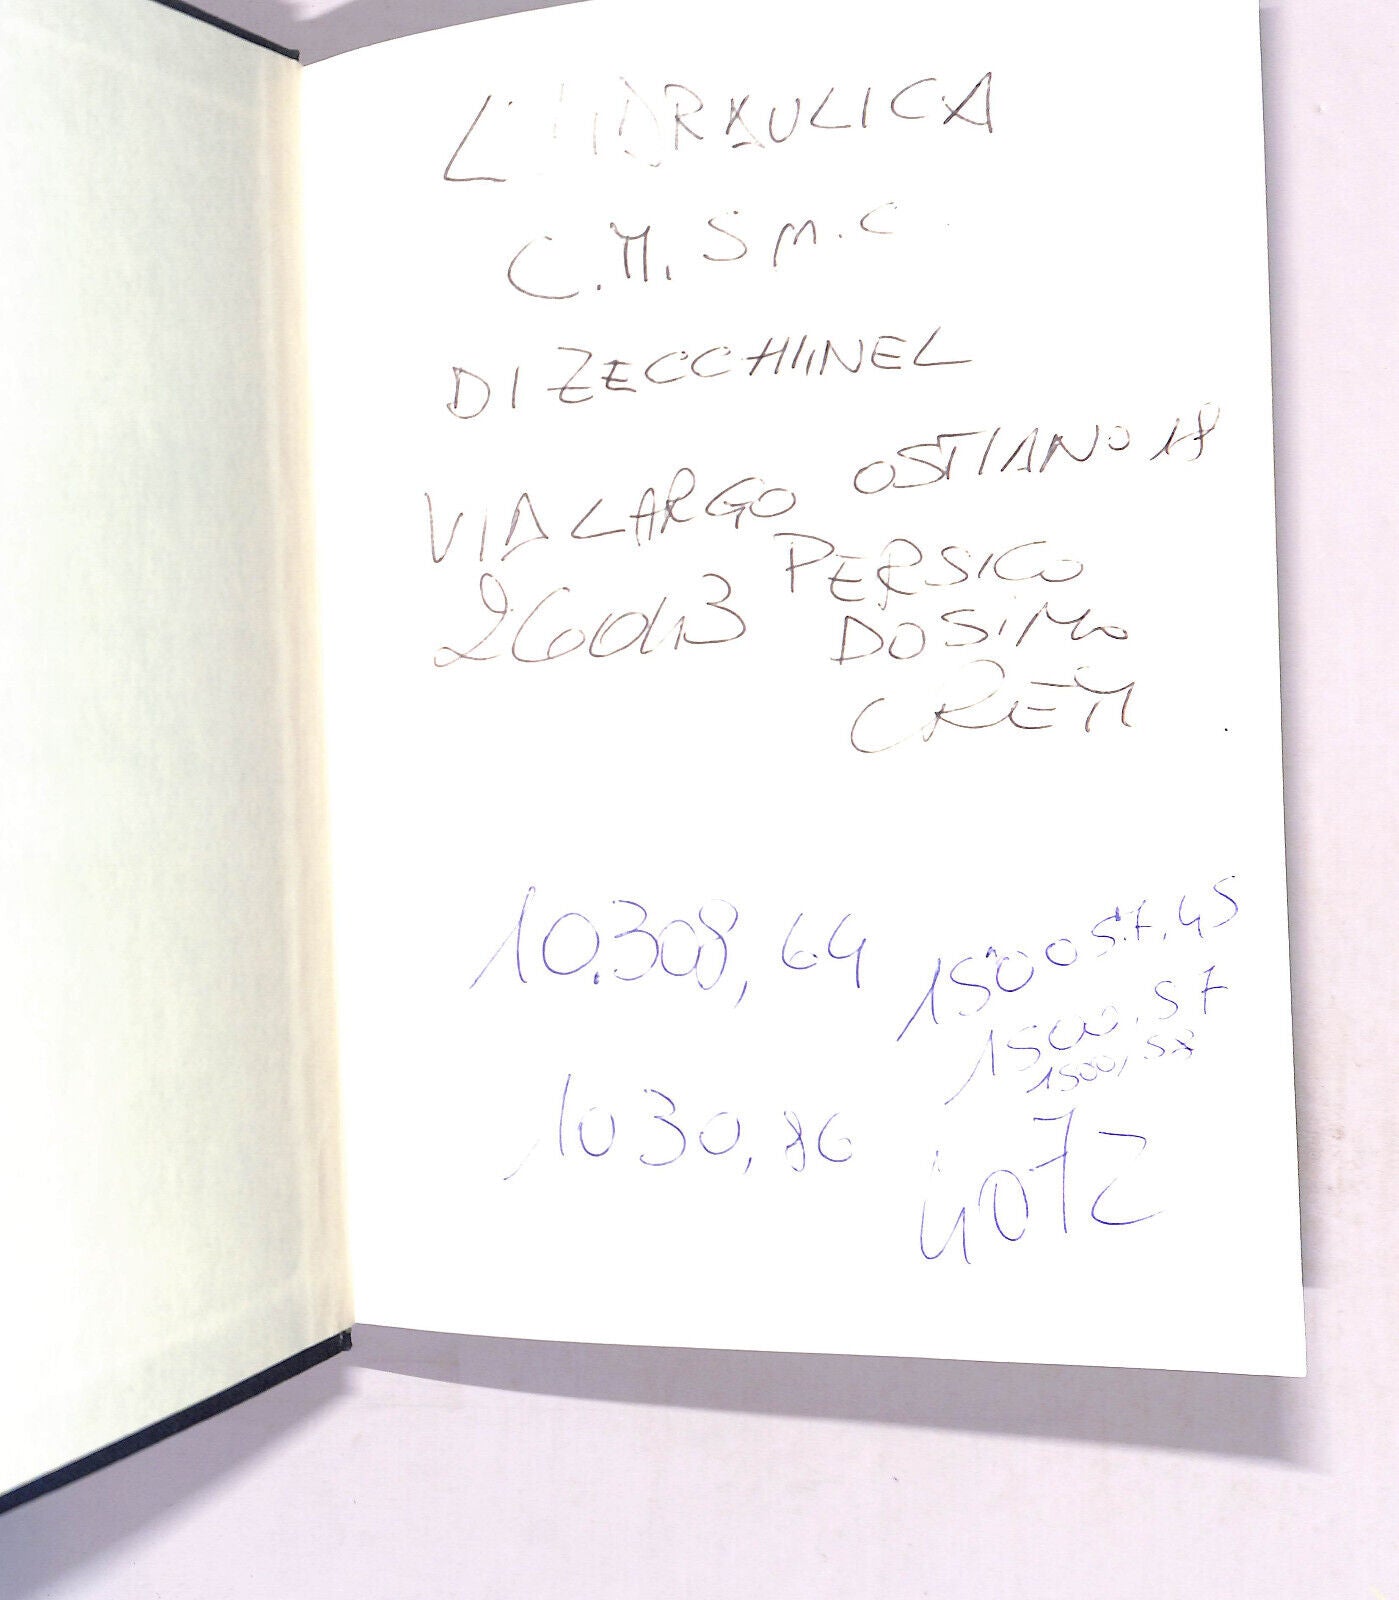 L'IDRAULICA
C.M. S n.c.
DI ZECCHINEL
VIA LARGO OSTIANO 18
26043 PERSICO
DOSIMO
CREM
10.308,64
1500 57.45
1500,57
1500,58
1030,86
4072